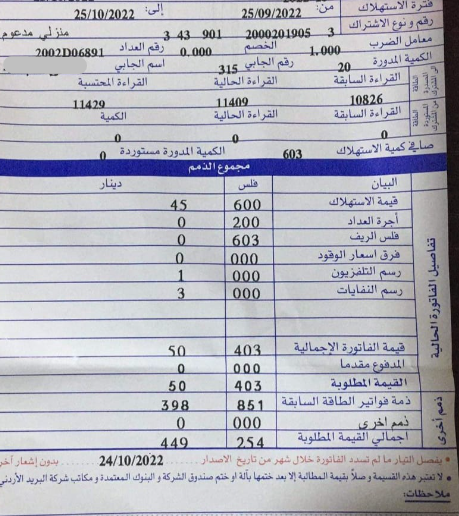 فترة الاستهلاك من: 25/09/2022 إلى: 25/10/2022
رقم و نوع الاشتراك 3 2000201905 901 43 3 منزلي مدعوم
معامل الضرب 1.000 الخصم 0.000 رقم العداد 2002D06891
الكمية المدورة 20 رقم الجابي 315 اسم الجابي
القراءة السابقة القراءة الحالية القراءة المحتسبة
10826 11409 11429
القراءة السابقة القراءة الحالية الكمية
0 0 0
صافي كمية الاستهلاك 603 الكمية المدورة مستوردة 0
مجموع الذمم
البيان فلس دينار
تفاصيل الفاتورة الحالية
قيمة الاستهلاك 600 45
أجرة العداد 200 0
فلس الريف 603 0
فرق اسعار الوقود 000 0
رسم التلفزيون 000 1
رسم النفايات 000 3
قيمة الفاتورة الإجمالية 403 50
المدفوع مقدما 000 0
القيمة المطلوبة 403 50
ذمم أخرى
ذمة فواتير الطاقة السابقة 851 398
ذمم اخرى 000 0
اجمالي القيمة المطلوبة 254 449
• يفصل التيار ما لم تسدد الفاتورة خلال شهر من تاريخ الاصدار 24/10/2022 بدون إشعار آخر
• لا تعتبر هذه القسيمة وصلاً بقيمة المطالبة إلا بعد ختمها بآلة او ختم صندوق الشركة و البنوك المعتمدة و مكاتب شركة البريد الأردني
ملاحظات: